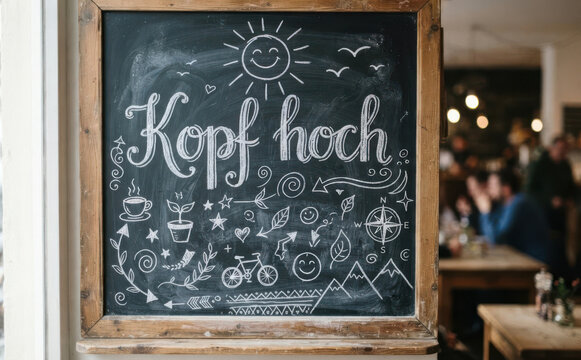 Kopf hoch
N
W E
S